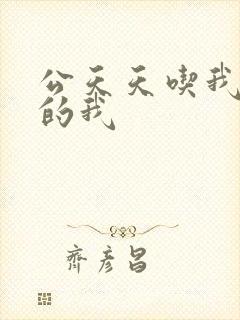 公天天喫我
的我
齊彦昌